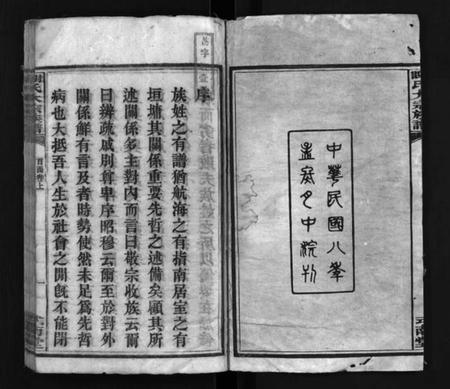 中華民國八年
孟冬之中浣刊
序
族姓之有譜猶航海之有指南居室之有
垣墉其關係重要先哲之述備矣顧其所
述關係多主對內而言曰敬宗收族云爾
曰辨疏戚別尊卑序昭穆云爾至於對外
關係鮮有言及者時勢使然未足爲先哲
病也大抵吾人生於社會之間旣不能閉
首卷上